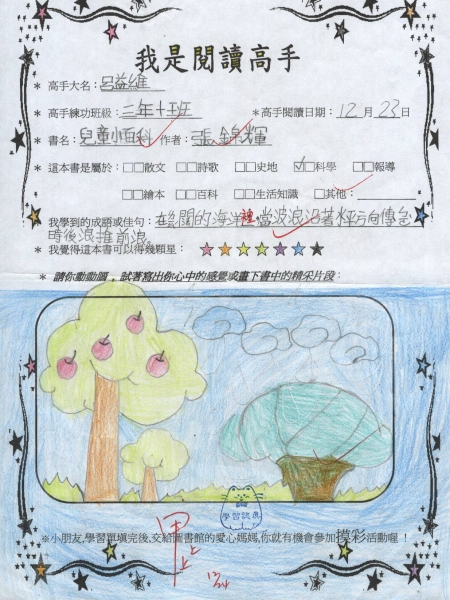 我是閱讀高手
* 高手大名：呂益維
* 高手練功班級：二年十班 *高手閱讀日期：12月23日
* 書名：兒童小百科 作者：張錦輝
* 這本書是屬於：□□散文 □□詩歌 □□史地 ☑□科學 □□報導
□□繪本 □□百科 □□生活知識 □其他：
* 我學到的成語或佳句：在遼闊的海洋裡當波浪沿著水平方向傳色
時後浪推前浪
* 我覺得這本書可以得幾顆星：
* 請你動動腦，試著寫出你心中的感覺或畫下書中的精采片段：
學習認真
※小朋友,學習單填完後,交給圖書館的愛心媽媽,你就有機會參加摸彩活動喔！
甲上上
12/24